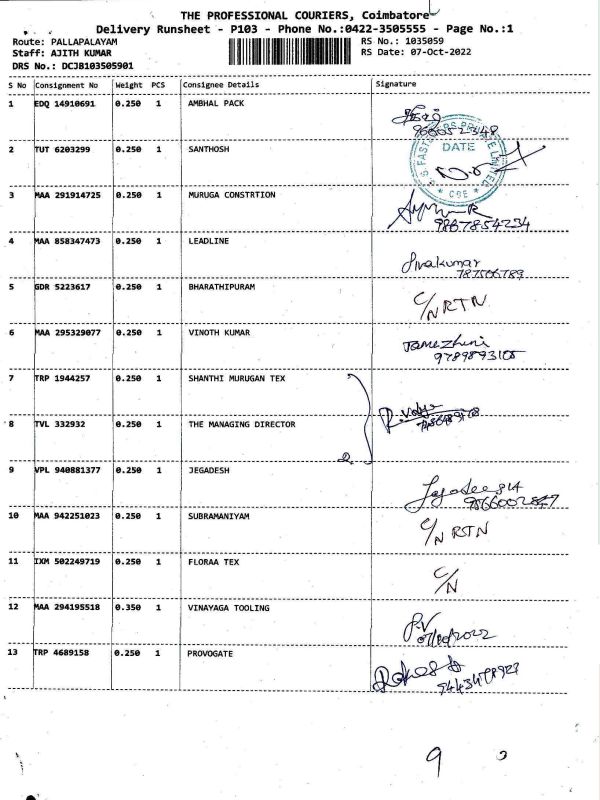 THE PROFESSIONAL COURIERS, Coimbatore
Delivery Runsheet - P103 - Phone No.:0422-3505555 - Page No.:1
Route: PALLAPALAYAM RS No.: 1035059
Staff: AJITH KUMAR RS Date: 07-Oct-2022
DRS No.: DCJB103505901
S No Consignment No Weight PCS Consignee Details Signature
1 EDQ 14910691 0.250 1 AMBHAL PACK
DATE
2 TUT 6203299 0.250 1 SANTHOSH
CBE
3 MAA 291914725 0.250 1 MURUGA CONSTRTION
9867854234
4 MAA 858347473 0.250 1 LEADLINE
Sivakumar
787506789
5 GDR 5223617 0.250 1 BHARATHIPURAM C/N RTN
6 MAA 295329077 0.250 1 VINOTH KUMAR
7 TRP 1944257 0.250 1 SHANTHI MURUGAN TEX
8 TVL 332932 0.250 1 THE MANAGING DIRECTOR
2.
9 VPL 940881377 0.250 1 JEGADESH
9566002847
10 MAA 942251023 0.250 1 SUBRAMANIYAM C/N RTN
11 IXM 502249719 0.250 1 FLORAA TEX C/N
12 MAA 294195518 0.350 1 VINAYAGA TOOLING
P.V
07/10/2022
13 TRP 4689158 0.250 1 PROVOGATE
9